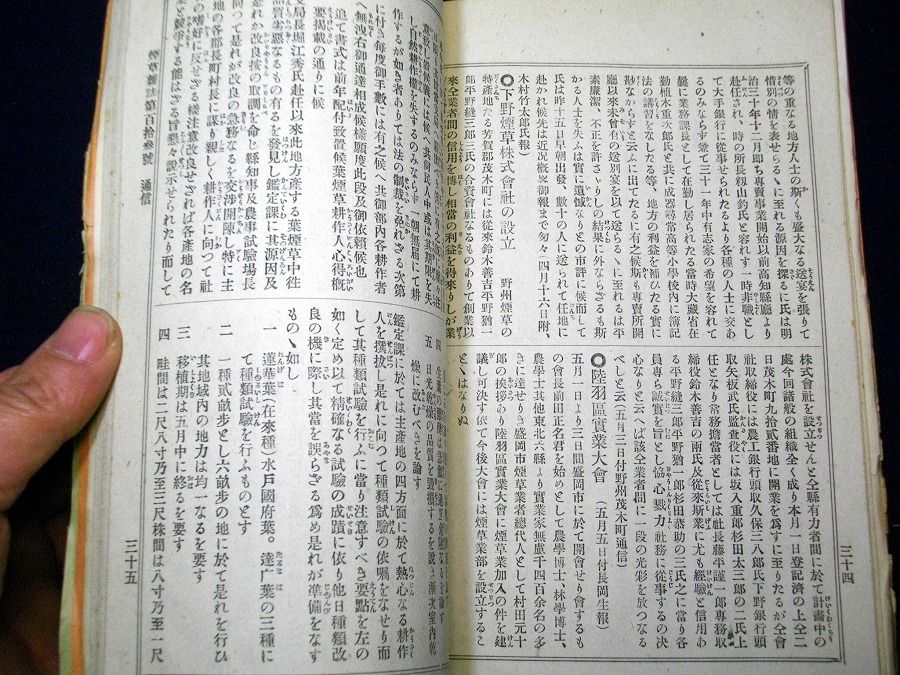 等の重なる地方人士の斯くも盛大なる送宴を張りて
惜別の情を表せらるゝに至れる源因を探るに氏は明
治三十年十二月即ち專賣事業開始以前高知縣廳より
赴任され、時の所長籾山釣氏と容れす一時非職とし
て大手銀行に從事されたるより各種の人士に交あ
るのみならす兼て三十一年中有志家の希望を容れて
曩に業務課長として在勤し居られたる當時大藏省在
勤植木重次郎氏と共に成器尋常高等小學校內に簿記
法の講習をなしたる等、地方の利益を補ひたる實に
尠なからすと云ふに出てたるに有之候斯も專賣所開
廳以來未曾有の送別宴を以て送らるゝに至れるは平
素廉潔、不正を許さゝりしの結果に外ならざるも斯
かる人士を失ふは實に遺憾なりとの市評に候而して
氏は昨十五日早朝出發、數十の人に送られて任地に
赴かれ候先は近況槪畧御報まで匆々(四月十六日附、
木村竹太郎氏報)
◎下野煙草株式會社の設立 野州煙草の
特產地たる芳賀郡茂木町には從來鈴木善吉平野猶一
郎平野縫三郎三氏の合資會社なるもありて創業以
來仝業者間の信用を博し相當の利益を得來りしが
株式會社を設立せんと仝縣有力者間に於て計畫中の
處今回諸般の組織全く成り本月一日登記濟の上仝二
日茂木町九拾貳番地に開業を爲すに至りたるが仝會
社取締役には農工銀行頭取久保三八郎氏下野銀行頭
取矢板武氏監査役には坂入重郎杉田太三郎の二氏上
任となり常務擔當者としては社長藤平謹一郎專務取
締役鈴木善吉の兩氏及從來斯業に尤も經驗と信用あ
る平野縫三郎平野猶一郎杉田恭助の三氏之に當り各
員專ら誠實を旨とし協心戮力社務に從事するの決
心なりと云へば該仝業者間に一段の光彩を放つなる
べしと云(五月三日付野州茂木町通信)
◎陸羽區實業大會 (五月五日付長岡生報)
五月一日より三日間盛岡市に於て開會せり會するも
の會長前田正名君を始めとして農學博士、林學博士、
農學士其他東北六縣より實業家無慮千四百余名の多
きに達せりさ盛岡市煙草業者總代人として村田元十
郎の挨拶あり陸羽區實業大會に煙草業加入の件を建
議し可決す依て今後大會には煙草業部を設立するこ
とゝはなりぬ
三十四
し自然耕作權を失するのみならす一朝無屆にて耕
作するが如き者ありては法の制裁を免れさる次第
に付き每度御手數には有之候へ共御部內各耕作者
へ無洩右御通達相成候樣願度此段及御依賴候也
追て書式は前年配付致置候葉煙草耕作人心得槪
要揭載の通りに候
支局長堀江秀氏赴任以來此地方產する葉煙草中往
品質劣惡なるもの有るを發見し鑑定課に其源因及
是れか改良按の取調を命し縣知事及農事試驗場長
つて是れが改良の急務なるを交涉開陳し特に主
地の各部長町村長に謀り親しく耕作人に向つて社
の嗜好に反せざる樣注意改良せざれば各產地の名
第百拾參號 通信
五 日光乾燥の品質を毀損するを說き漸次室內乾
燥に改むべきを論す
鑑定課に於ては主產地の四方面に於て熱心なる耕作
人を撰拔し是れに向つて種類試驗の依囑をなせり而
して其種類試驗を行ふに當り注意すべき要點を左の
如く定め以て精確なる試驗の成蹟に依り他日種類改
良の機に際し其當を誤らざる爲め是れが準備をなす
ものゝ如し
一 蓮華葉(在來種)水戶國府葉。達广葉の三種に
て種類試驗を行ふものとす
二 一種貳畝步とし六畝步の地に於て是れを行ひ
其地域內の地力は均一なるを要す
三 移植期は五月中に終るを要す
四 畦間は二尺八寸乃至三尺株間は八寸乃至一尺
三十五